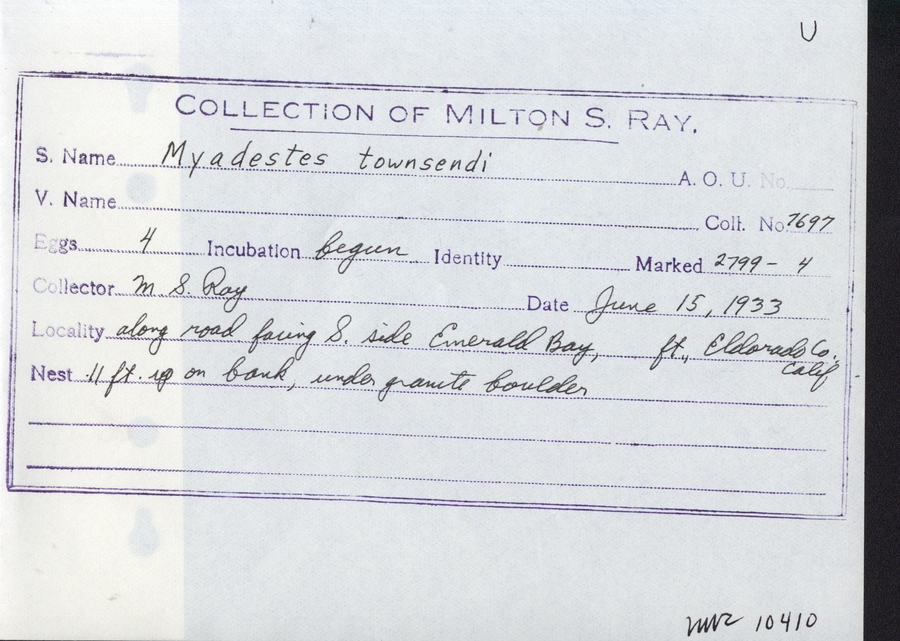 U
COLLECTION OF MILTON S. RAY.
S. Name Myadestes townsendi A. O. U. No.
V. Name Coll. No. 7697
Eggs 4 Incubation begun Identity Marked 2799 - 4
Collector M S. Ray Date June 15, 1933
Locality along road facing S. side Emerald Bay, ft., Eldorado Co. Calif
Nest 11 ft. up on bank, under granite boulder
10410